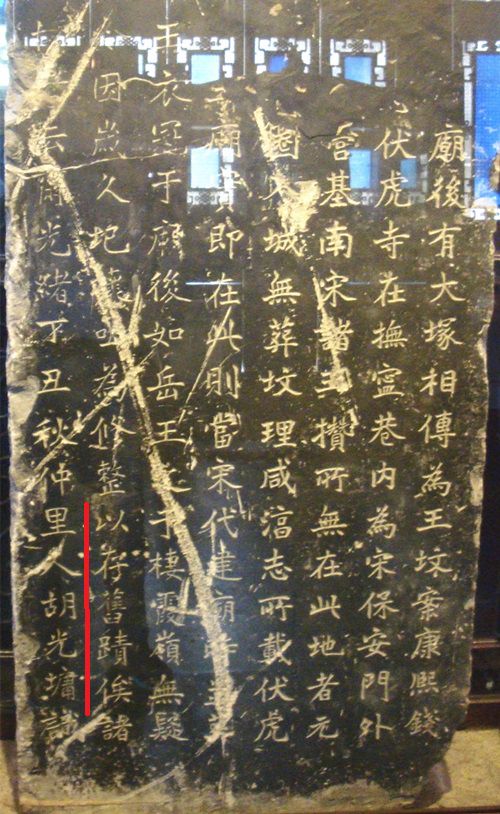 廟後有大塚相傳為王墳案康熙錢
伏虎寺在撫寧巷內為宋保安門外
營基南宋諸王攢所無在此地者元
圈入城無葬墳理咸湻志所載伏虎
廟即在此則當宋代建廟時並葬
王衣冠于廟後如岳王之于棲霞嶺無疑
因歲久圮壞亟為修整以存舊蹟俟諸
云爾光緒丁丑秋仲里人胡光墉識